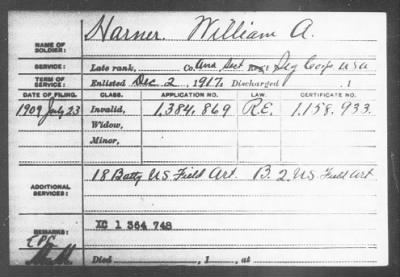 Harner, William A.
NAME OF SOLDIER:
SERVICE: Late rank, Co. Una Sect Reg't Sig Corps USA
TERM OF SERVICE: Enlisted Dec 2, 1917, Discharged , 1
DATE OF FILING. CLASS. APPLICATION NO. LAW. CERTIFICATE NO.
1909 July 23 Invalid, 1,384,869 R.E. 1,158,933.
Widow,
Minor,
18 Batty US Field Art. B. 2 US Field Art
ADDITIONAL SERVICES:
XC 1 364 748
REMARKS:
Died , 1 , at